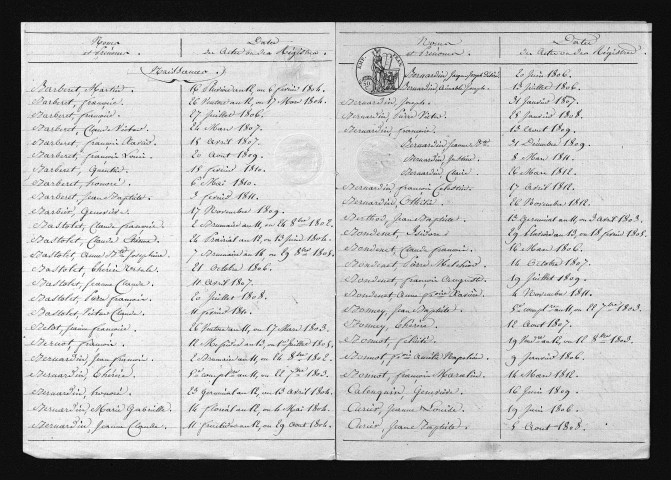 Noms et Prénoms.
Dates des Actes ou des Registres.
(Naissances.)
Barberet, François. 26 Ventose an 12, ou 17 Mars 1804.
Barberet, François. 27 Juillet 1806.
Barberet, Claude Victor. 24 Mars 1807.
Barberet, François Xavier. 16 Avril 1807.
Barberet, François Louis. 20 Aout 1809.
Barberet, 18 février 1810.
Barberet, honoré. 6 Mai 1810.
Barberet, Jean Baptiste. 3 février 1811.
Barbier, Geneviève. 17 Novembre 1809.
Bastolet, Claude François. 2 Brumaire an 11, ou 24 8bre 1802.
Bastolet, Claude Etienne. 24 Prairial an 12, ou 13 Juin 1804.
Bastolet, Anne Josephine. 7 Brumaire an ou 29 8bre
Bastolet, Thérèse 21 Octobre 1806.
Bastolet, Jeanne Claude. 11 Avril 1807.
Bastolet, Pierre François. 20 Juillet 1808.
Bastolet, Victor Claude. 11 février 1810.
Belot, François. 26 Ventose an 11, ou 17 Mars 1803.
Bernardin, Jean François. 2 Brumaire an 11, ou 24 8bre 1802.
Bernardin, Thérèse. 5e compl.re an 11, ou 22 7bre 1803.
Bernardin, honoré. 23 Germinal an 12, ou 13 Avril 1804.
Bernardin, Marie Gabrielle. 14 floréal an 12, ou 4 Mai 1804.
Bernardin, Jeanne Claude. 11 fructidor an 12, ou 29 Aout 1804.
Noms et Prénoms.
Dates des Actes ou des Registres.
Bernardin, Joseph 20 Juin 1806.
Bernardin, Aimable Joseph. 13 Juillet 1806.
Bernardin, Joseph. 31 Janvier 1807.
Bernardin, Pierre Victor. 28 Janvier 1808.
Bernardin, François. 13 Aout 1809.
Bernardin, Jeanne 31 Décembre 1809.
Bernardin, 8 Mars 1811.
Bernardin, Claire. 26 Mars 1812.
Bernardin, François Célestin. 17 Avril 1812.
Bernardin, Othilie. 22 Novembre 1812.
Berthod, Jean Baptiste. 13 Germinal an 11, ou 3 Avril 1803.
Bondenet, Isidore. 29 Pluviose an 13, ou 18 févr 1805.
Bondenet, Claude François. 16 Mars 1806.
Bondenet, Pierre Melchior. 14 Octobre 1807.
Bondenet, François Auguste. 19 Juillet 1809.
Bondenet, Anne 4 Novembre 1811.
Bonney, Jean Baptiste. 5e compl.re an 11, ou 22 7bre 1803.
Bonney, Thérèse. 12 Aout 1807.
Bonnot, félicité. 19 an 12, ou 12 8bre 1803.
Bonnot, Napoléon. 9 Janvier 1806.
Bonnot, François Marcelin. 16 Mars 1812.
Calenquin, Geneviève. 16 Juin 1809.
Curié, Jeanne Louise. 19 Juin 1806.
Curié, Jean Baptiste. 5 Aout 1808.